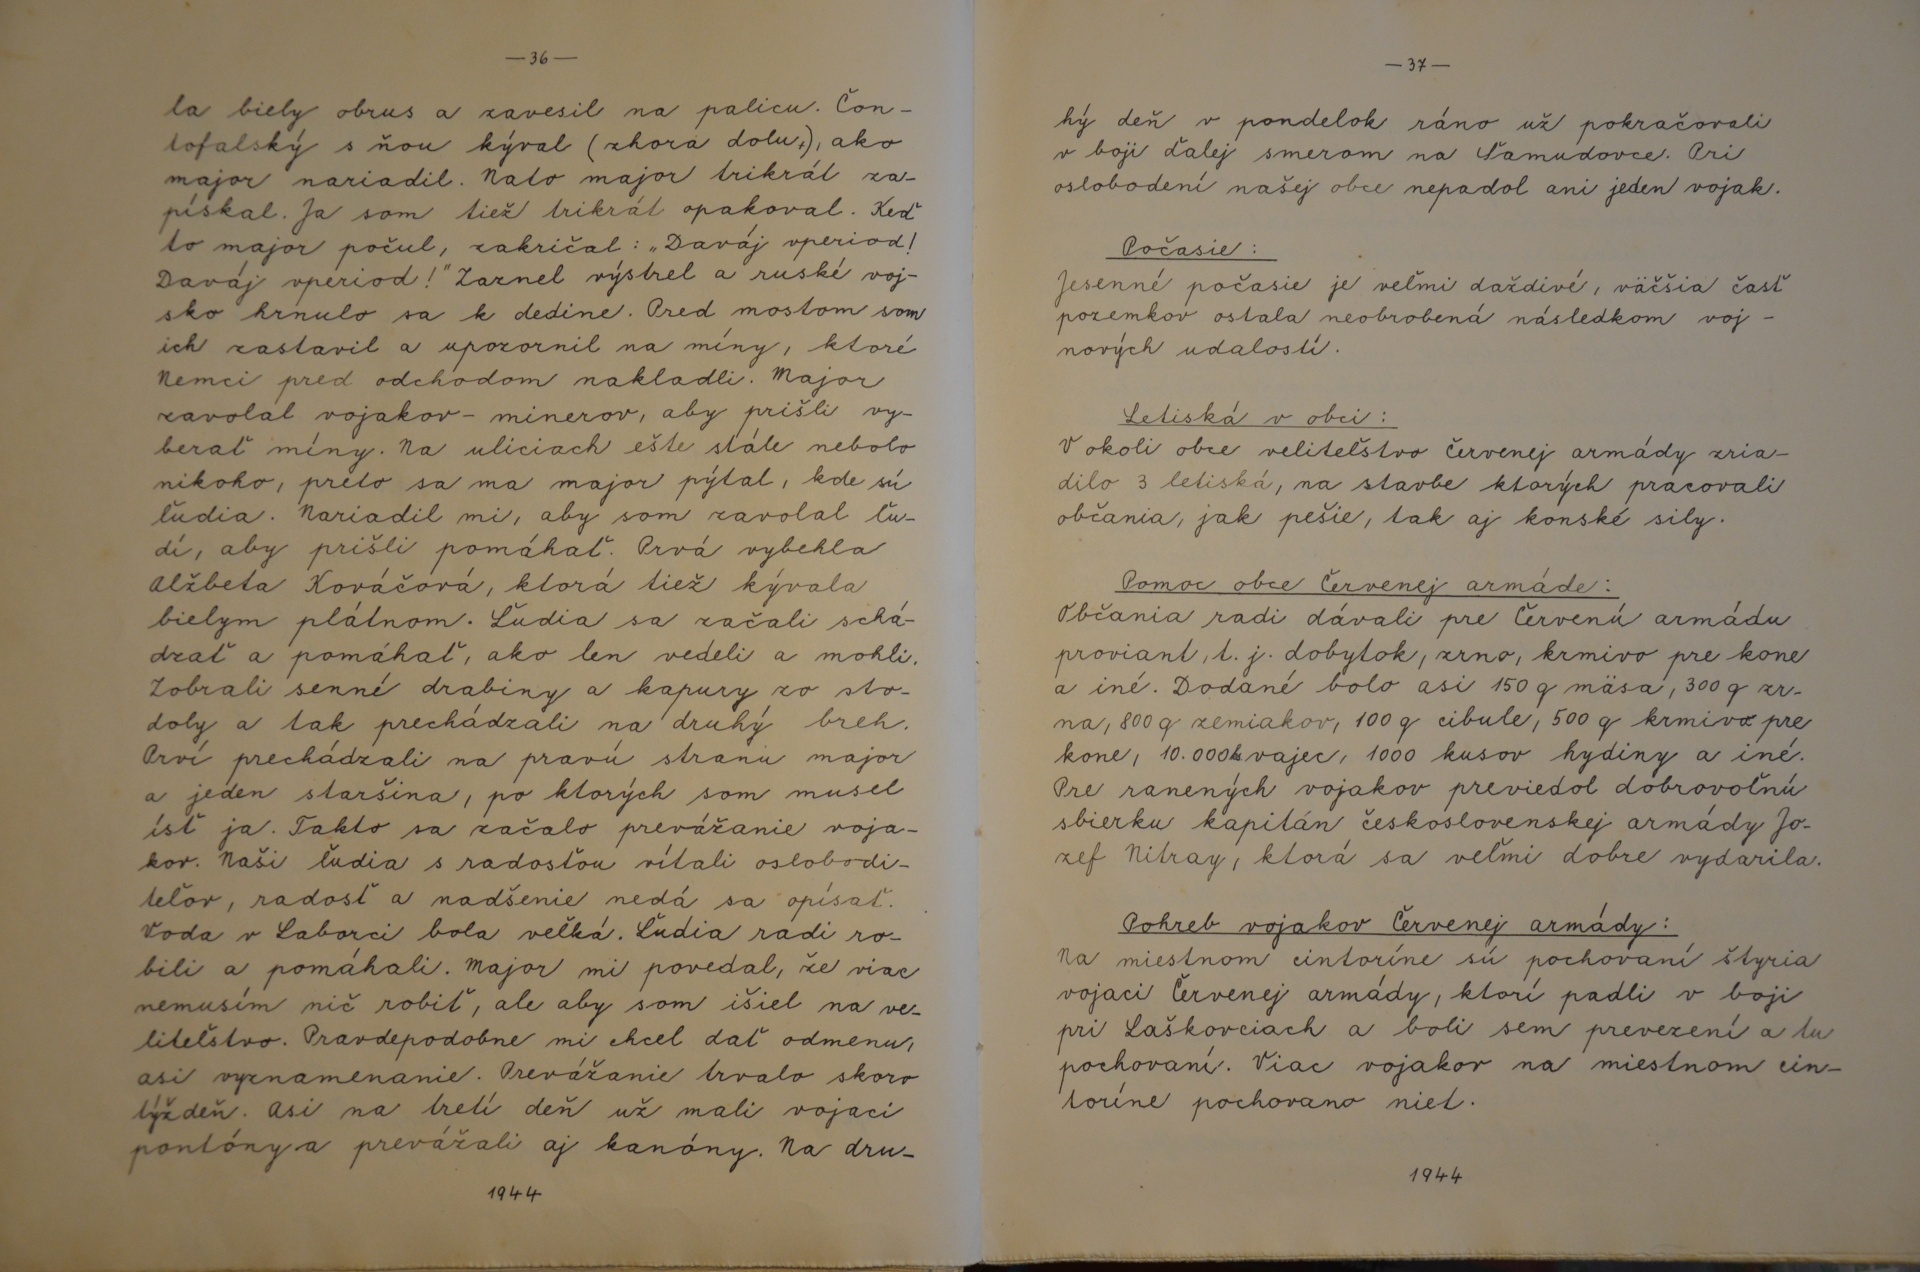 —36—
la biely obrus a zavesil na palicu. Čon-
tofalský s ňou kýval (zhora dolu,), ako
major nariadil. Nato major trikrát za-
pískal. Ja som tiež trikrát opakoval. Keď
to major počul, zakričal: „Daváj vperiod!
Daváj vperiod!" Zaznel výstrel a ruské voj-
sko hrnulo sa k dedine. Pred mostom som
ich zastavil a upozornil na míny, ktoré
Nemci pred odchodom nakladli. Major
zavolal vojakov-minerov, aby prišli vy-
berať míny. Na uliciach ešte stále nebolo
nikoho, preto sa ma major pýtal, kde sú
ľudia. Nariadil mi, aby som zavolal ľu-
dí, aby prišli pomáhať. Prvá vybehla
Alžbeta Kováčová, ktorá tiež kývala
bielym plátnom. Ľudia sa začali schá-
dzať a pomáhať, ako len vedeli a mohli.
Zobrali senné drabiny a kapury zo sto-
doly a tak prechádzali na druhý breh.
Prví prechádzali na pravú stranu major
a jeden staršina, po ktorých som musel
ísť ja. Takto sa začalo prevážanie voja-
kov. Naši ľudia s radosťou vítali oslobodi-
teľov, radosť a nadšenie nedá sa opísať.
Voda v Laborci bola veľká. Ľudia radi ro-
bili a pomáhali. Major mi povedal, že viac
nemusím nič robiť, ale aby som išiel na ve-
liteľstvo. Pravdepodobne mi chcel dať odmenu,
asi vyznamenanie. Prevážanie trvalo skoro
týždeň. Asi na tretí deň už mali vojaci
pontóny a prevážali aj kanóny. Na dru-
1944
—37—
hý deň v pondelok ráno už pokračovali
v boji ďalej smerom na Šamudovce. Pri
oslobodení našej obce nepadol ani jeden vojak.
Počasie:
Jesenné počasie je veľmi daždivé, väčšia časť
pozemkov ostala neobrobená následkom voj-
nových udalostí.
Letiská v obci:
V okolí obce veliteľstvo Červenej armády zria-
dilo 3 letiská, na stavbe ktorých pracovali
občania, jak pešie, tak aj konské sily.
Pomoc obce Červenej armáde:
Občania radi dávali pre Červenú armádu
proviant, t. j. dobytok, zrno, krmivo pre kone
a iné. Dodané bolo asi 150 q mäsa, 300 q zr-
na, 800 q zemiakov, 100 q cibule, 500 q krmiva pre
kone, 10.000 ks vajec, 1000 kusov hydiny a iné.
Pre ranených vojakov previedol dobrovoľnú
sbierku kapitán československej armády Jo-
zef Nitray, ktorá sa veľmi dobre vydarila.
Pohreb vojakov Červenej armády:
Na miestnom cintoríne sú pochovaní štyria
vojaci Červenej armády, ktorí padli v boji
pri Laškovciach a boli sem prevezení a tu
pochovaní. Viac vojakov na miestnom cin-
toríne pochovano niet.
1944